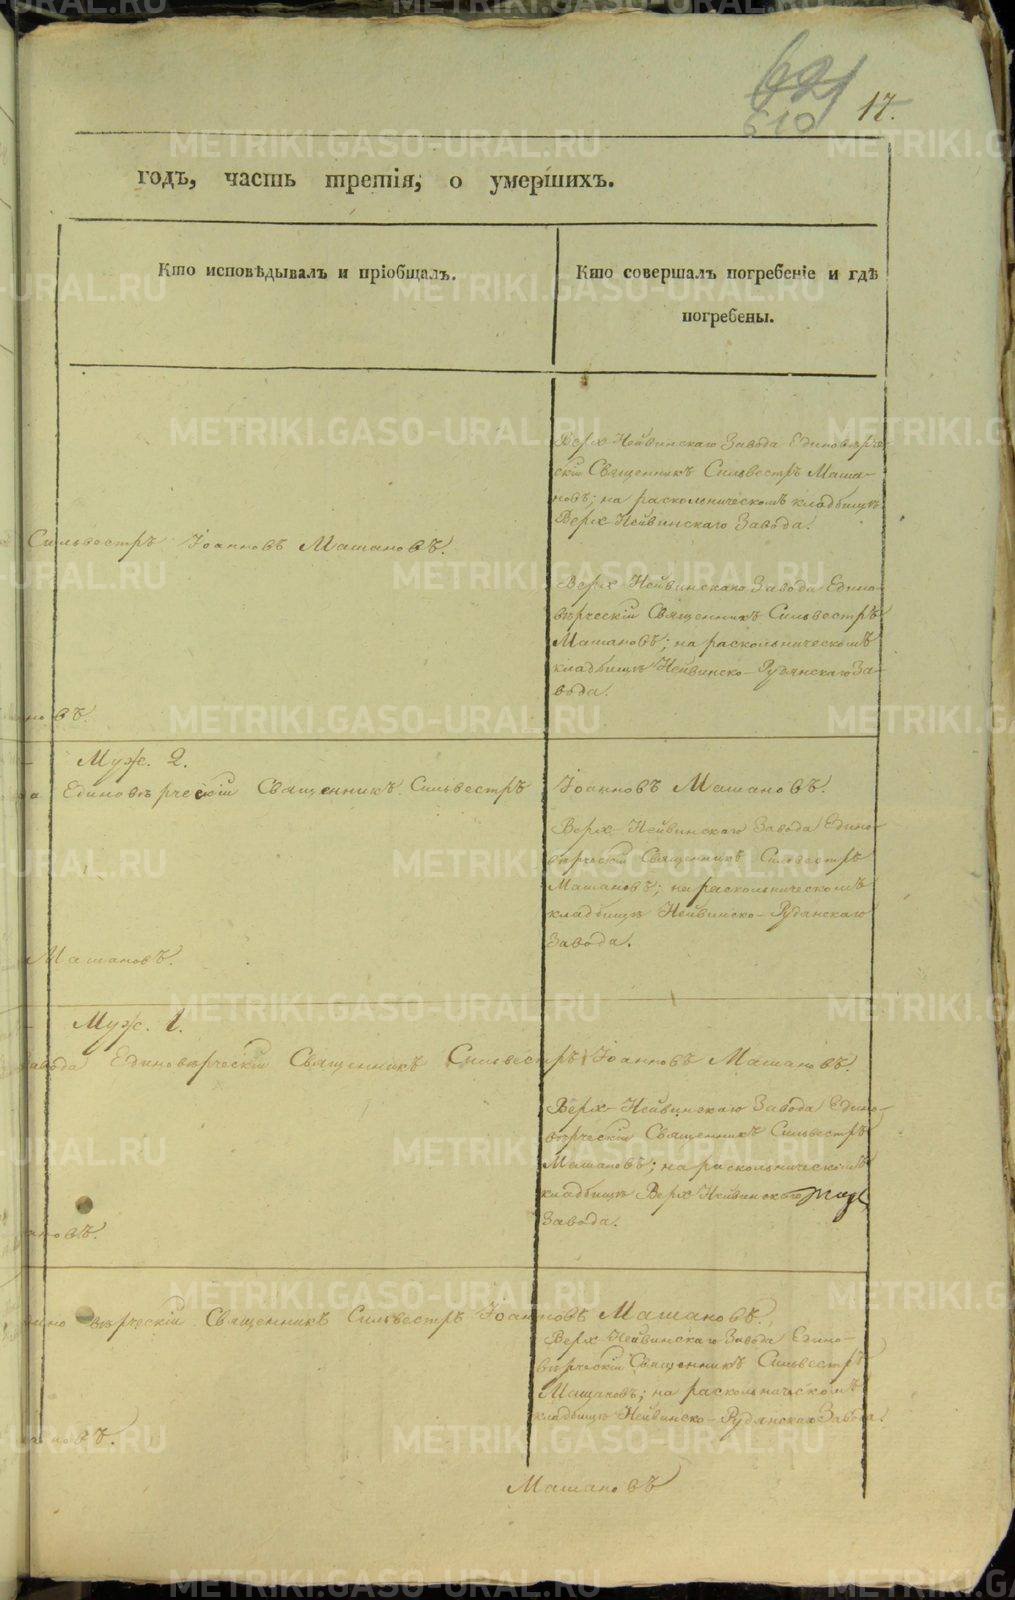 510
17.
годъ, часть третія, о умершихъ.
Кто исповѣдывалъ и пріобщалъ.
Кто совершалъ погребеніе и гдѣ
погребены.
Верх-Нейвинскаго Завода Единовѣрче-
скій Священникъ Сильвестръ Маша-
новъ; на раскольническомъ кладбищѣ
Верх-Нейвинскаго Завода.
Сильвестръ Іоанновъ Машановъ.
Верх-Нейвинскаго Завода Едино-
вѣрческій Священникъ Сильвестръ
Машановъ; на раскольническомъ
кладбищѣ Нейвинско-Рудянскаго За-
вода.
новъ.
Муж. 2.
Единовѣрческій Священникъ Сильвестръ Іоанновъ Машановъ.
Верх-Нейвинскаго Завода Едино-
вѣрческій Священникъ Сильвестръ
Машановъ; на раскольническомъ
кладбищѣ Нейвинско-Рудянскаго
Завода.
Машановъ.
Муж. 1.
завода Единовѣрческій Священникъ Сильвестръ Іоанновъ Машановъ.
Верх-Нейвинскаго Завода Едино-
вѣрческій Священникъ Сильвестръ
Машановъ; на раскольническомъ
кладбищѣ Верх-Нейвинскаго
Завода.
ановъ.
ино вѣрческій Священникъ Сильвестръ Іоанновъ Машановъ.
Верх-Нейвинскаго Завода Едино-
вѣрческій Священникъ Сильвестръ
Машановъ; на раскольническомъ
кладбищѣ Нейвинско-Рудянскаго Завода.
новъ.
Машановъ
METRIKI.GASO-URAL.RU